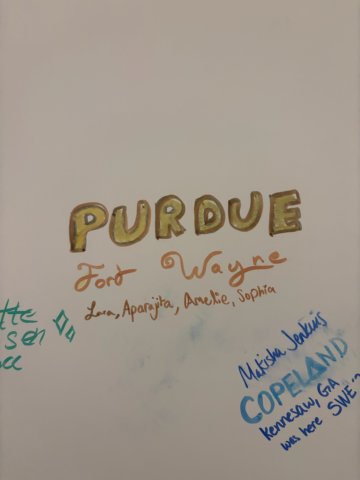 PURDUE
Fort Wayne
Lara, Aparajita, Amelie, Sophia
Makisha Jenkins
COPELAND
Kennesaw, GA
was here SWE